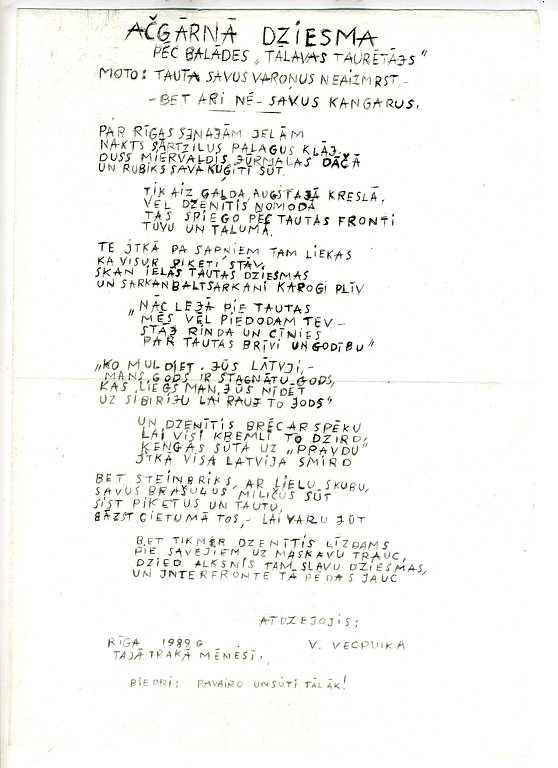 AČGĀRNĀ DZIESMA
PĒC BALĀDES „TĀLAVAS TAURĒTĀJS"
MOTO: TAUTA SAVUS VAROŅUS NEAIZMIRST,-
- BET ARĪ NĒ - SAVUS KANGARUS.
PAR RĪGAS SENAJĀM IELĀM
NAKTS SĀRTZILUS PALAGUS KLĀJ,
DUSS MIERVALDIS JŪRMALAS DAČĀ
UN RUBIKS SAVĀ KUĢĪTĪ SŪT.
TIK AIZ GALDA, AUGSTAJĀ KRESLĀ,
VĒL DZENĪTIS NOMODĀ
TAS SPIEGO PĒC TAUTAS FRONTI
TUVU UN TĀLUMĀ.
TE ITKĀ PA SAPŅIEM TAM LIEKAS
KA VISUR PIĶETI STĀV,
SKAN IELĀS TAUTAS DZIESMAS
UN SARKANBALTSARKANI KAROGI PLĪV
„NĀC LEJĀ PIE TAUTAS
MĒS VĒL PIEDODAM TEV -
STĀJ RINDĀ UN CĪNIES
PAR TAUTAS BRĪVI UN GODĪBU"
„KO MULDIET, JŪS LATVJI,-
MANS GODS IR STAGNĀTU GODS,
KAS LIEGS MAN, JŪS NĪDĒT
UZ SIBĪRIJU LAI RAUJ TO JODS"
UN DZENĪTIS BRĒC AR SPĒKU
LAI VISI KREMLĪ TO DZIRD,
ĶENGAS SŪTA UZ „PRAVDU"
ITKĀ VISA LATVIJA SMIRD
BET ŠTEINBRIKS, AR LIELU SKUBU,
SAVUS BRAŠUĻUS MILIČUS SŪT
SIST PIĶETUS UN TAUTU,
BĀZST CIETUMĀ TOS,- LAI VARU JŪT
BET TIKMĒR DZENĪTIS LĪZDAMS
PIE SAVĒJIEM UZ MASKAVU TRAUC,
DZIED ALKSNIS TAM SLAVU DZIESMAS,
UN INTERFRONTE TĀ PĒDAS JAUC
ATDZEJOJIS:
RĪGĀ 1989.G V. VECPUIKA
TAJĀ TRAKĀ MĒNESĪ.
BIEDRI: PAVAIRO UN SŪTI TĀLĀK!